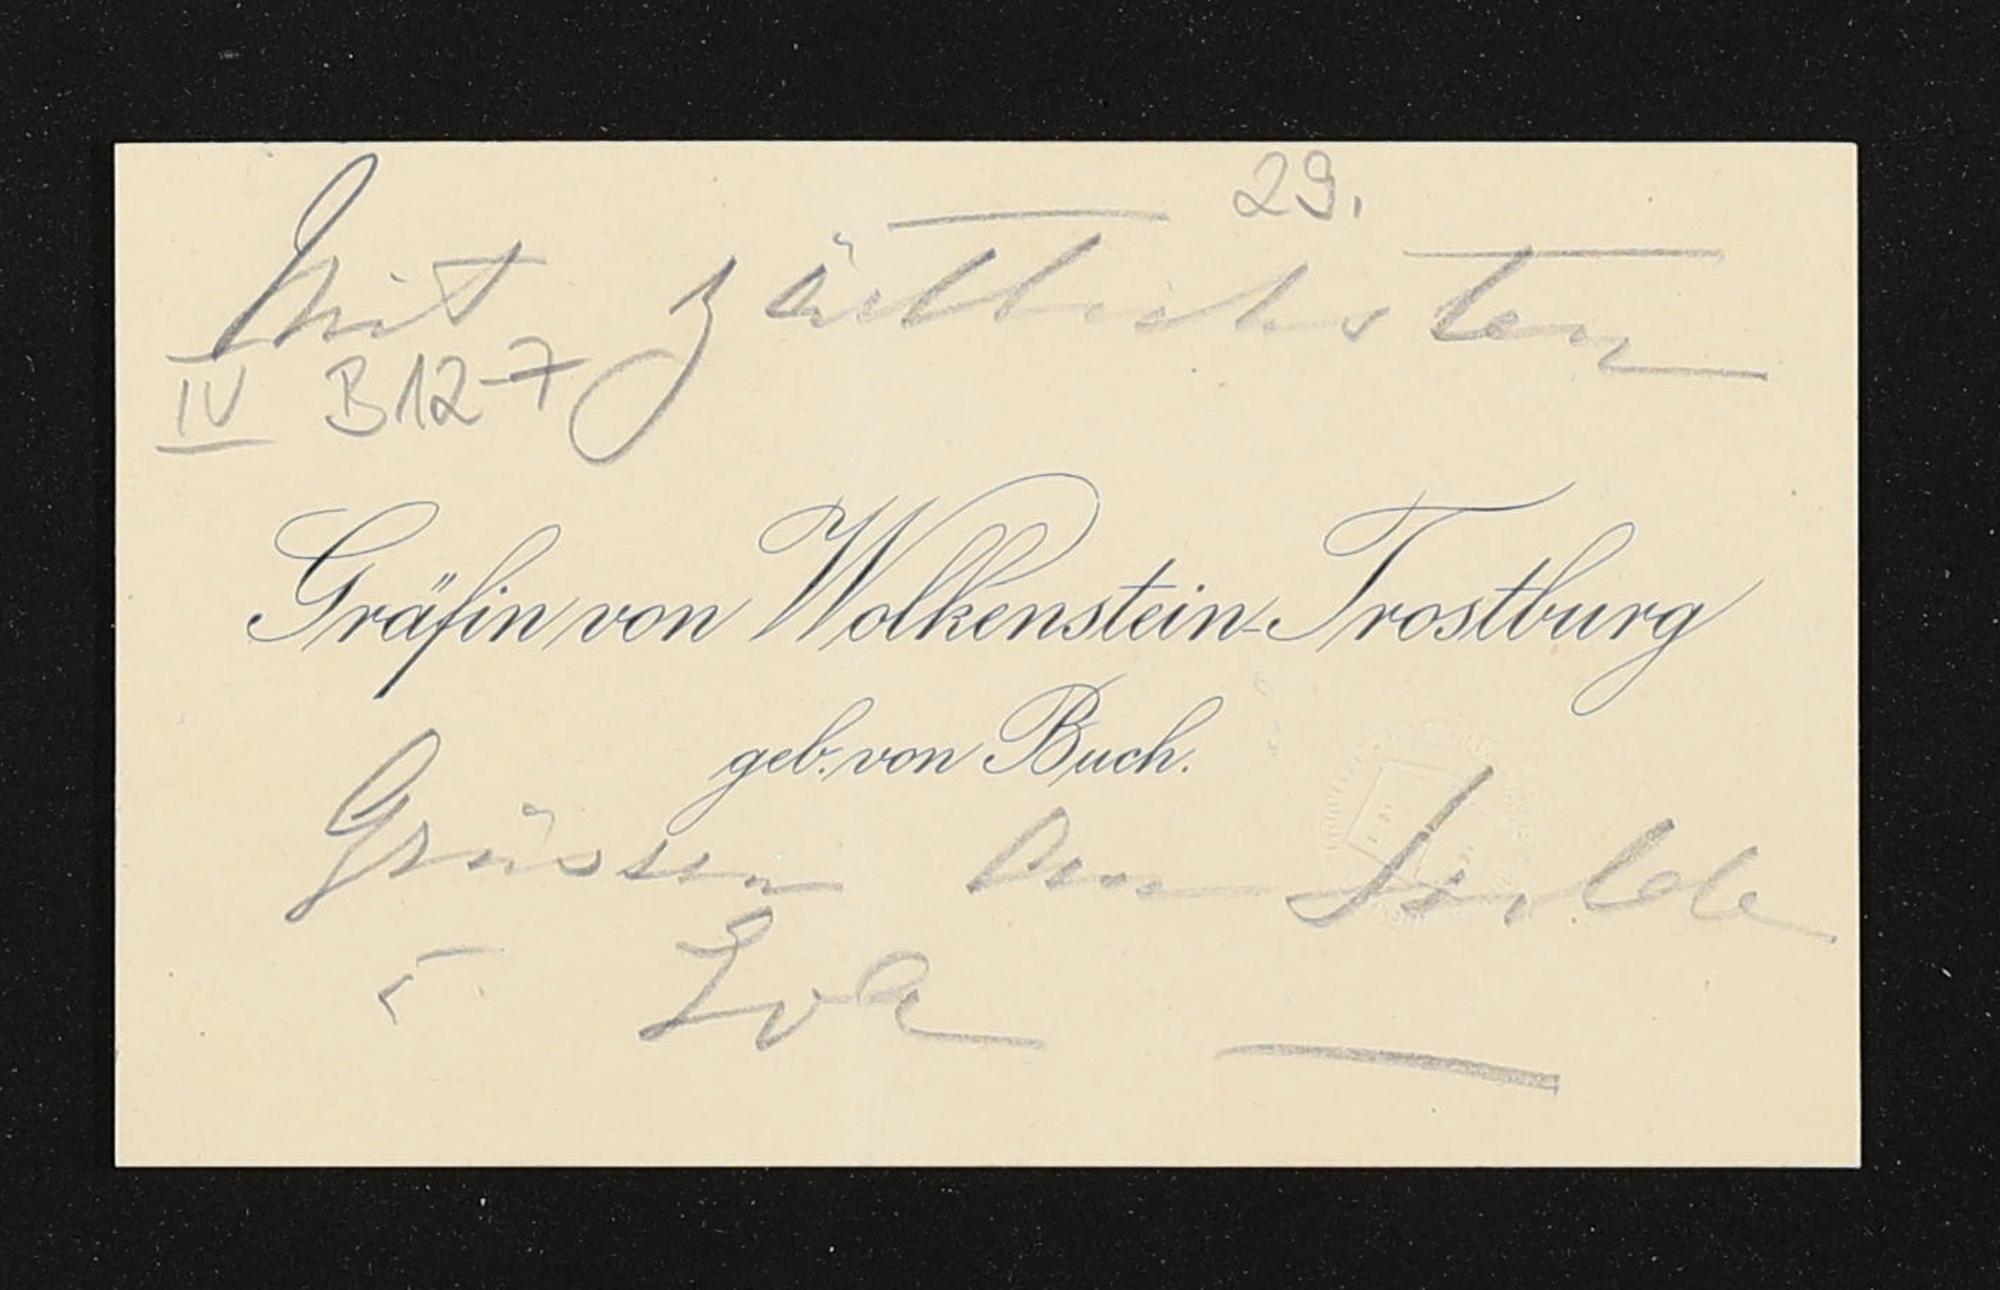 29.
Mit zärtlichsten
IV B12-7
Gräfin von Wolkenstein-Trostburg
geb. von Buch.
Grüssen an Isolde
Eva